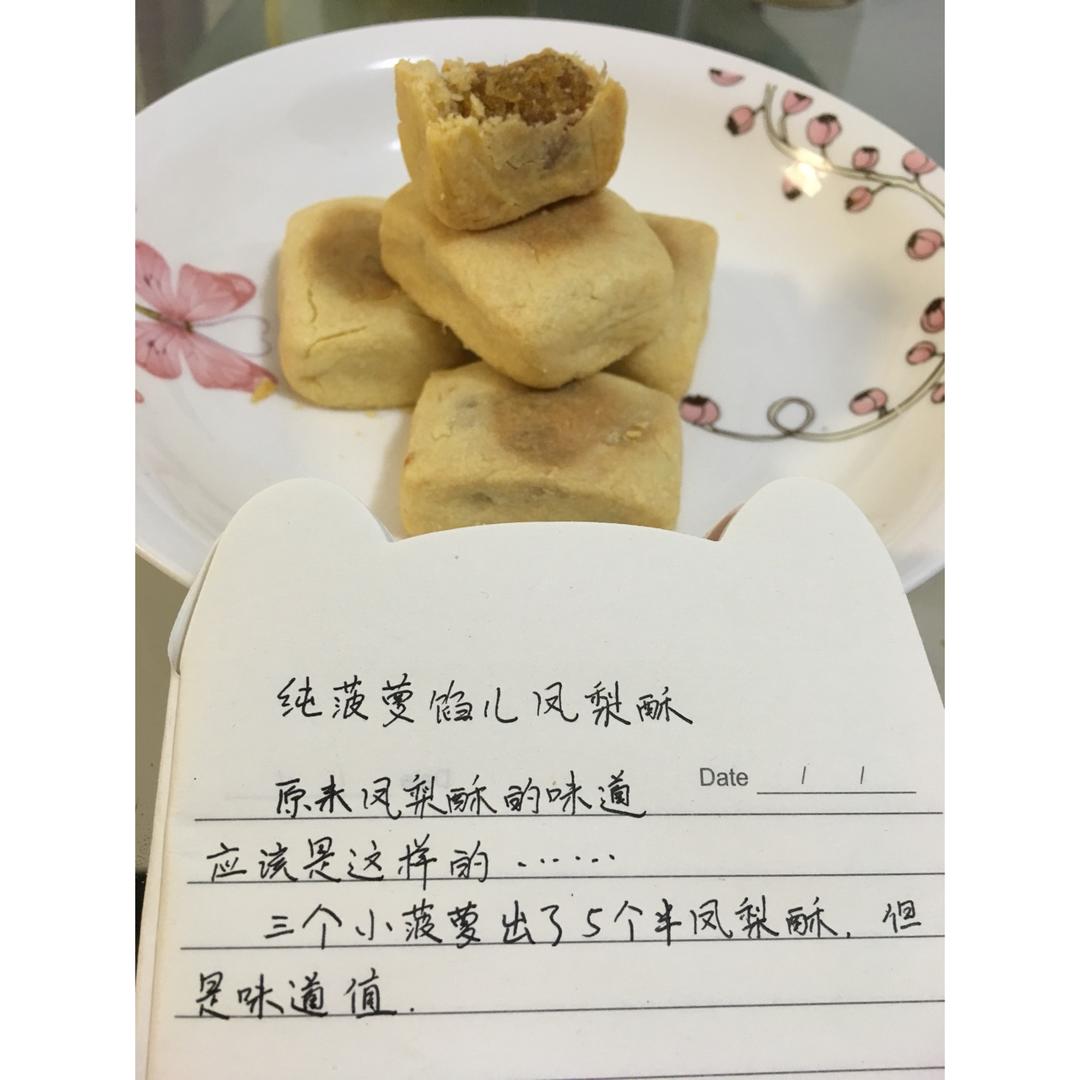 纯菠萝馅儿凤梨酥
Date / /
原来凤梨酥的味道
应该是这样的 ······
三个小菠萝出了5个半凤梨酥. 但
是味道值.